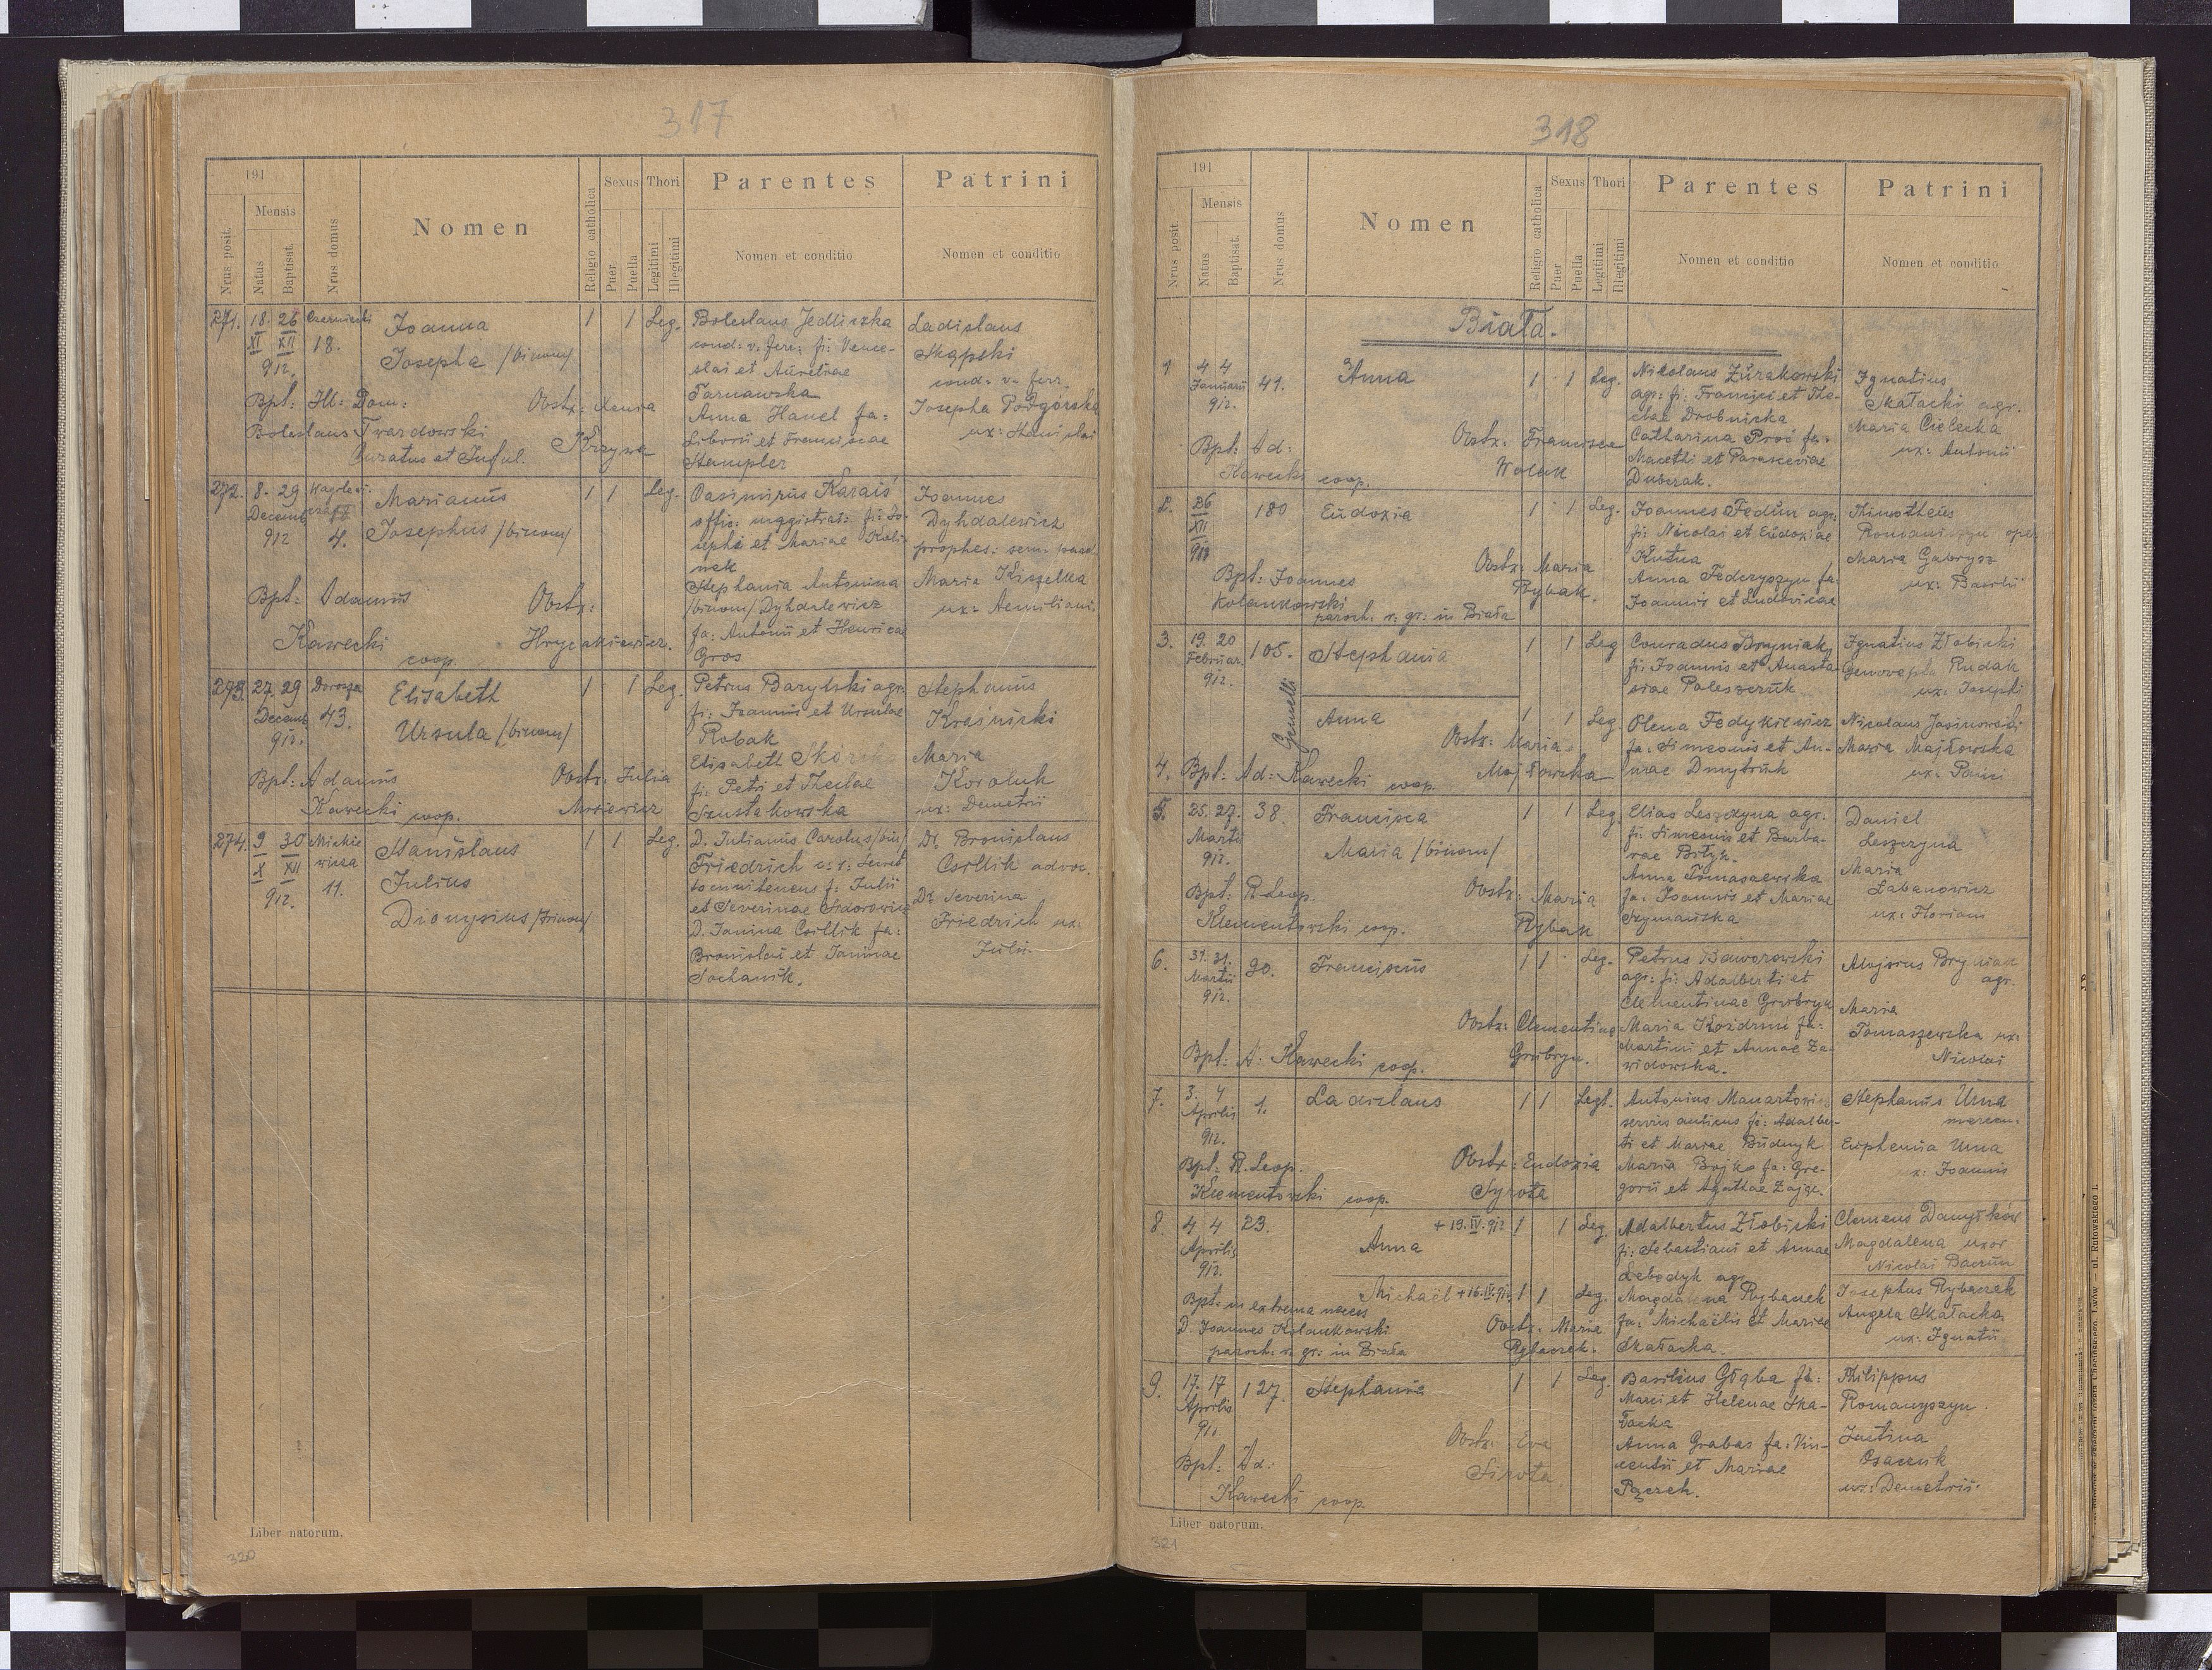 317
191
Mensis
Nrus posit.
Natus
Baptisat.
Nrus domus
Nomen
Religio catholica
Sexus
Puer
Puella
Thori
Legitimi
Illegitimi
Parentes
Nomen et conditio
Patrini
Nomen et conditio
271. 18. 26 XI XII 912. 18.
Joanna
Josepha /binom/
1 1 Leg.
Boleslaus Jedliczka
cond: v. ferr: fi: Vence-
slai et Aureliae
Tarnawska
Anna Hanel fa:
Liborii et Franciscae
Stempler
Ladislaus
Skąpski
cond: v. ferr.
Josepha Podgórska
ux: Stanislai
Bpt: Ill: Dom:
Boleslaus Twardowski
curatus et Inful.
Obstx: Xenia
272. 8. 29 Decemb 912 4.
Marianus
Josephus /binom/
1 1 Leg.
Casimirus Karaiś
offic: magistrat: fi: Jo-
sephi et Mariae Kali-
nek
Stephania Antonina
/binom/ Dyhdalewicz
fa: Antonii et Henricae
Gros
Joannes
Dyhdalewicz
Maria Kiszelka
ux: Aemiliani
Bpt: Adamus
Kawecki
coop.
Obstx:
Hrycakiewicz.
273. 27. 29 Decemb 912. 43.
Elisabeth
Ursula /binom/
1 1 Leg.
Petrus Barylski agr.
fi: Joannis et Ursulae
Robak
Elisabeth
fi: Petri et Theclae
Szustakowska
Stephanus
Kraśnicki
Maria
Koroluk
ux: Demetrii
Bpt: Adamus
Kawecki coop.
Obstx: Julia
274. 9 30 X XII 912. Mickie
wicza
11.
Stanislaus
Julius
Dionysius /trinom/
1 1 Leg.
D. Julianus Carolus /bin/
Friedrich
fi: Julii
et Severinae Sidorowicz
D. Janina Csillik fa:
Bronislai et Janinae
Sochanik.
Dr. Bronislaus
Csillik advoc.
Dr. Severina
Friedrich ux:
Julii.
Liber natorum.
320
318
191
Mensis
Nrus posit.
Natus
Baptisat.
Nrus domus
Nomen
Religio catholica
Sexus
Puer
Puella
Thori
Legitimi
Illegitimi
Parentes
Nomen et conditio
Patrini
Nomen et conditio
Biała.
1 4 4 Januarii 912. 41.
Anna
1 1 Leg.
Nicolaus Żurakowski
agr: fi: Francisci et The-
clae Drobnicka
Catharina Proć fa:
Macethi et Parasceviae
Dubczak.
Ignatius
Skałacki agr.
Maria Cielecka
ux: Antonii
Bpt: Ad:
Kawecki coop.
Obstx: Francisca
Wolak
2. 26 XII 911 180
Eudoxia
1 1 Leg.
Joannes Fedun agr:
fi: Nicolai et Eudoxiae
Kutna
Anna Federyszyn fa:
Joannis et Ludovicae
Thimotheus
Romaniszyn
Maria Gabrysz
ux: Basilii
Bpt: Joannes
Kolankowski
paroch. r. gr: in Biała
Obstx: Maria
Rybak.
3. 19. 20 Februar. 912. 105.
Stephania
1 1 Leg
Conradus Bryniak,
fi: Joannis et Anasta-
siae Paleszczuk
Ignatius Złobicki
Genovepha Rudak
ux: Josephi
Gemelli
Anna
1 1 Leg
Olena Fedykiewicz
fa: Simeonis et An-
nae Dmytruk
Nicolaus Jasinowski
Maria Majkowska
ux: Pauli
4. Bpt: Ad: Kawecki coop.
Obstx: Maria
Majkowska
5. 25. 27. Martii 912. 38.
Francisca
Maria /binom/
1 1 Leg.
Elias Leszczyna agr.
fi: Simeonis et Barba-
rae Bityk.
Anna Tomaszewska
fa: Joannis et Mariae
Szymańska
Daniel
Leszczyna
Maria
Łabanowicz
ux: Floriani
Bpt: R. Leop.
Klementowski coop.
Obstx: Maria
Rybak
6. 31. 31. Martii 912. 90.
Franciscus
1 1 Leg.
Petrus Baworowski
agr: fi: Adalberti et
Clementinae Grubryn
Maria Koźdruń fa:
Martini et Annae Za-
widowska.
Aloysius Bryniak
agr.
Maria
Tomaszewska ux:
Nicolai
Bpt: A: Kawecki coop.
Obstx: Clementina
Grubryn.
7. 3. 4 Aprilis 912. 1.
Ladislaus
1 1 Legt.
Antonius
fi: Adalber-
ti et Mariae Budnyk
Maria Bojko fa: Gre-
gorii et Agathae Zając.
Stephanus Uma
Euphemia Uma
x: Joannis
Bpt: R. Leop.
Klementowski coop.
Obstx: Eudoxia
Syrota
8. 4 4 Aprilis 912. 23.
Anna + 19.IV.912
1 1 Leg.
Adalbertus Złobicki
fi: Sebastiani et Annae
Łebedyk agr.
Clemens Danyłków
Magdalena uxor
Nicolai Bacrun
Michaël + 16.IV.912
1 1 Leg.
Magdalena Rybaczek
fa: Michaëlis et Mariae
Skałacka.
Josephus Rybaczek
Angela Skałacka
ux: Ignatii
Bpt: in extrema neces
D. Joannes Kolankowski
paroch: r. gr: in Biała
Obstx: Maria
Rybaczek.
9. 17. 17 Aprilis 127.
Stephania
1 1 Leg.
Basilius Głąba fi:
Marci et Helenae Ska-
łacka
Anna Grabas fa: Vin-
centii et Mariae
Pączek.
Philippus
Romanyszyn.
Justina
Osaczuk
ux: Demetrii.
Bpt: Ad:
Kawecki coop.
Obstx: Eva
Sirota
Liber natorum.
321